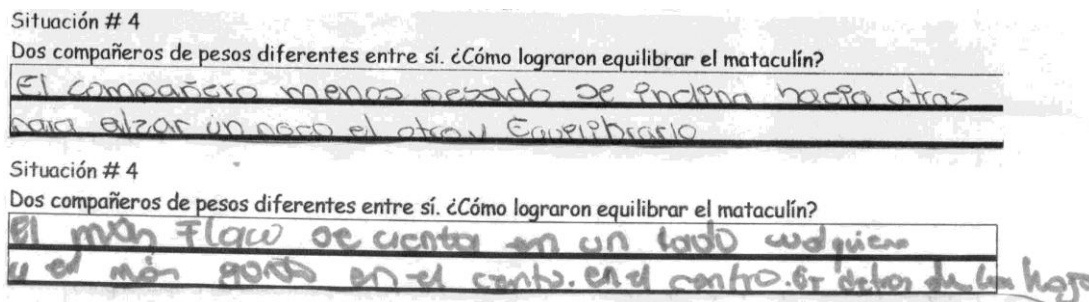 Situación # 4
Dos compañeros de pesos diferentes entre sí. ¿Cómo lograron equilibrar el mataculín?
El compañero menos pesado se inclina hacia atras
para alzar un poco el otro y Equelibrarlo
Situación # 4
Dos compañeros de pesos diferentes entre sí. ¿Cómo lograron equilibrar el mataculín?
El mán Flaco se cienta en un lado cualquiera
y el mán gordo en el centro. en el centro.